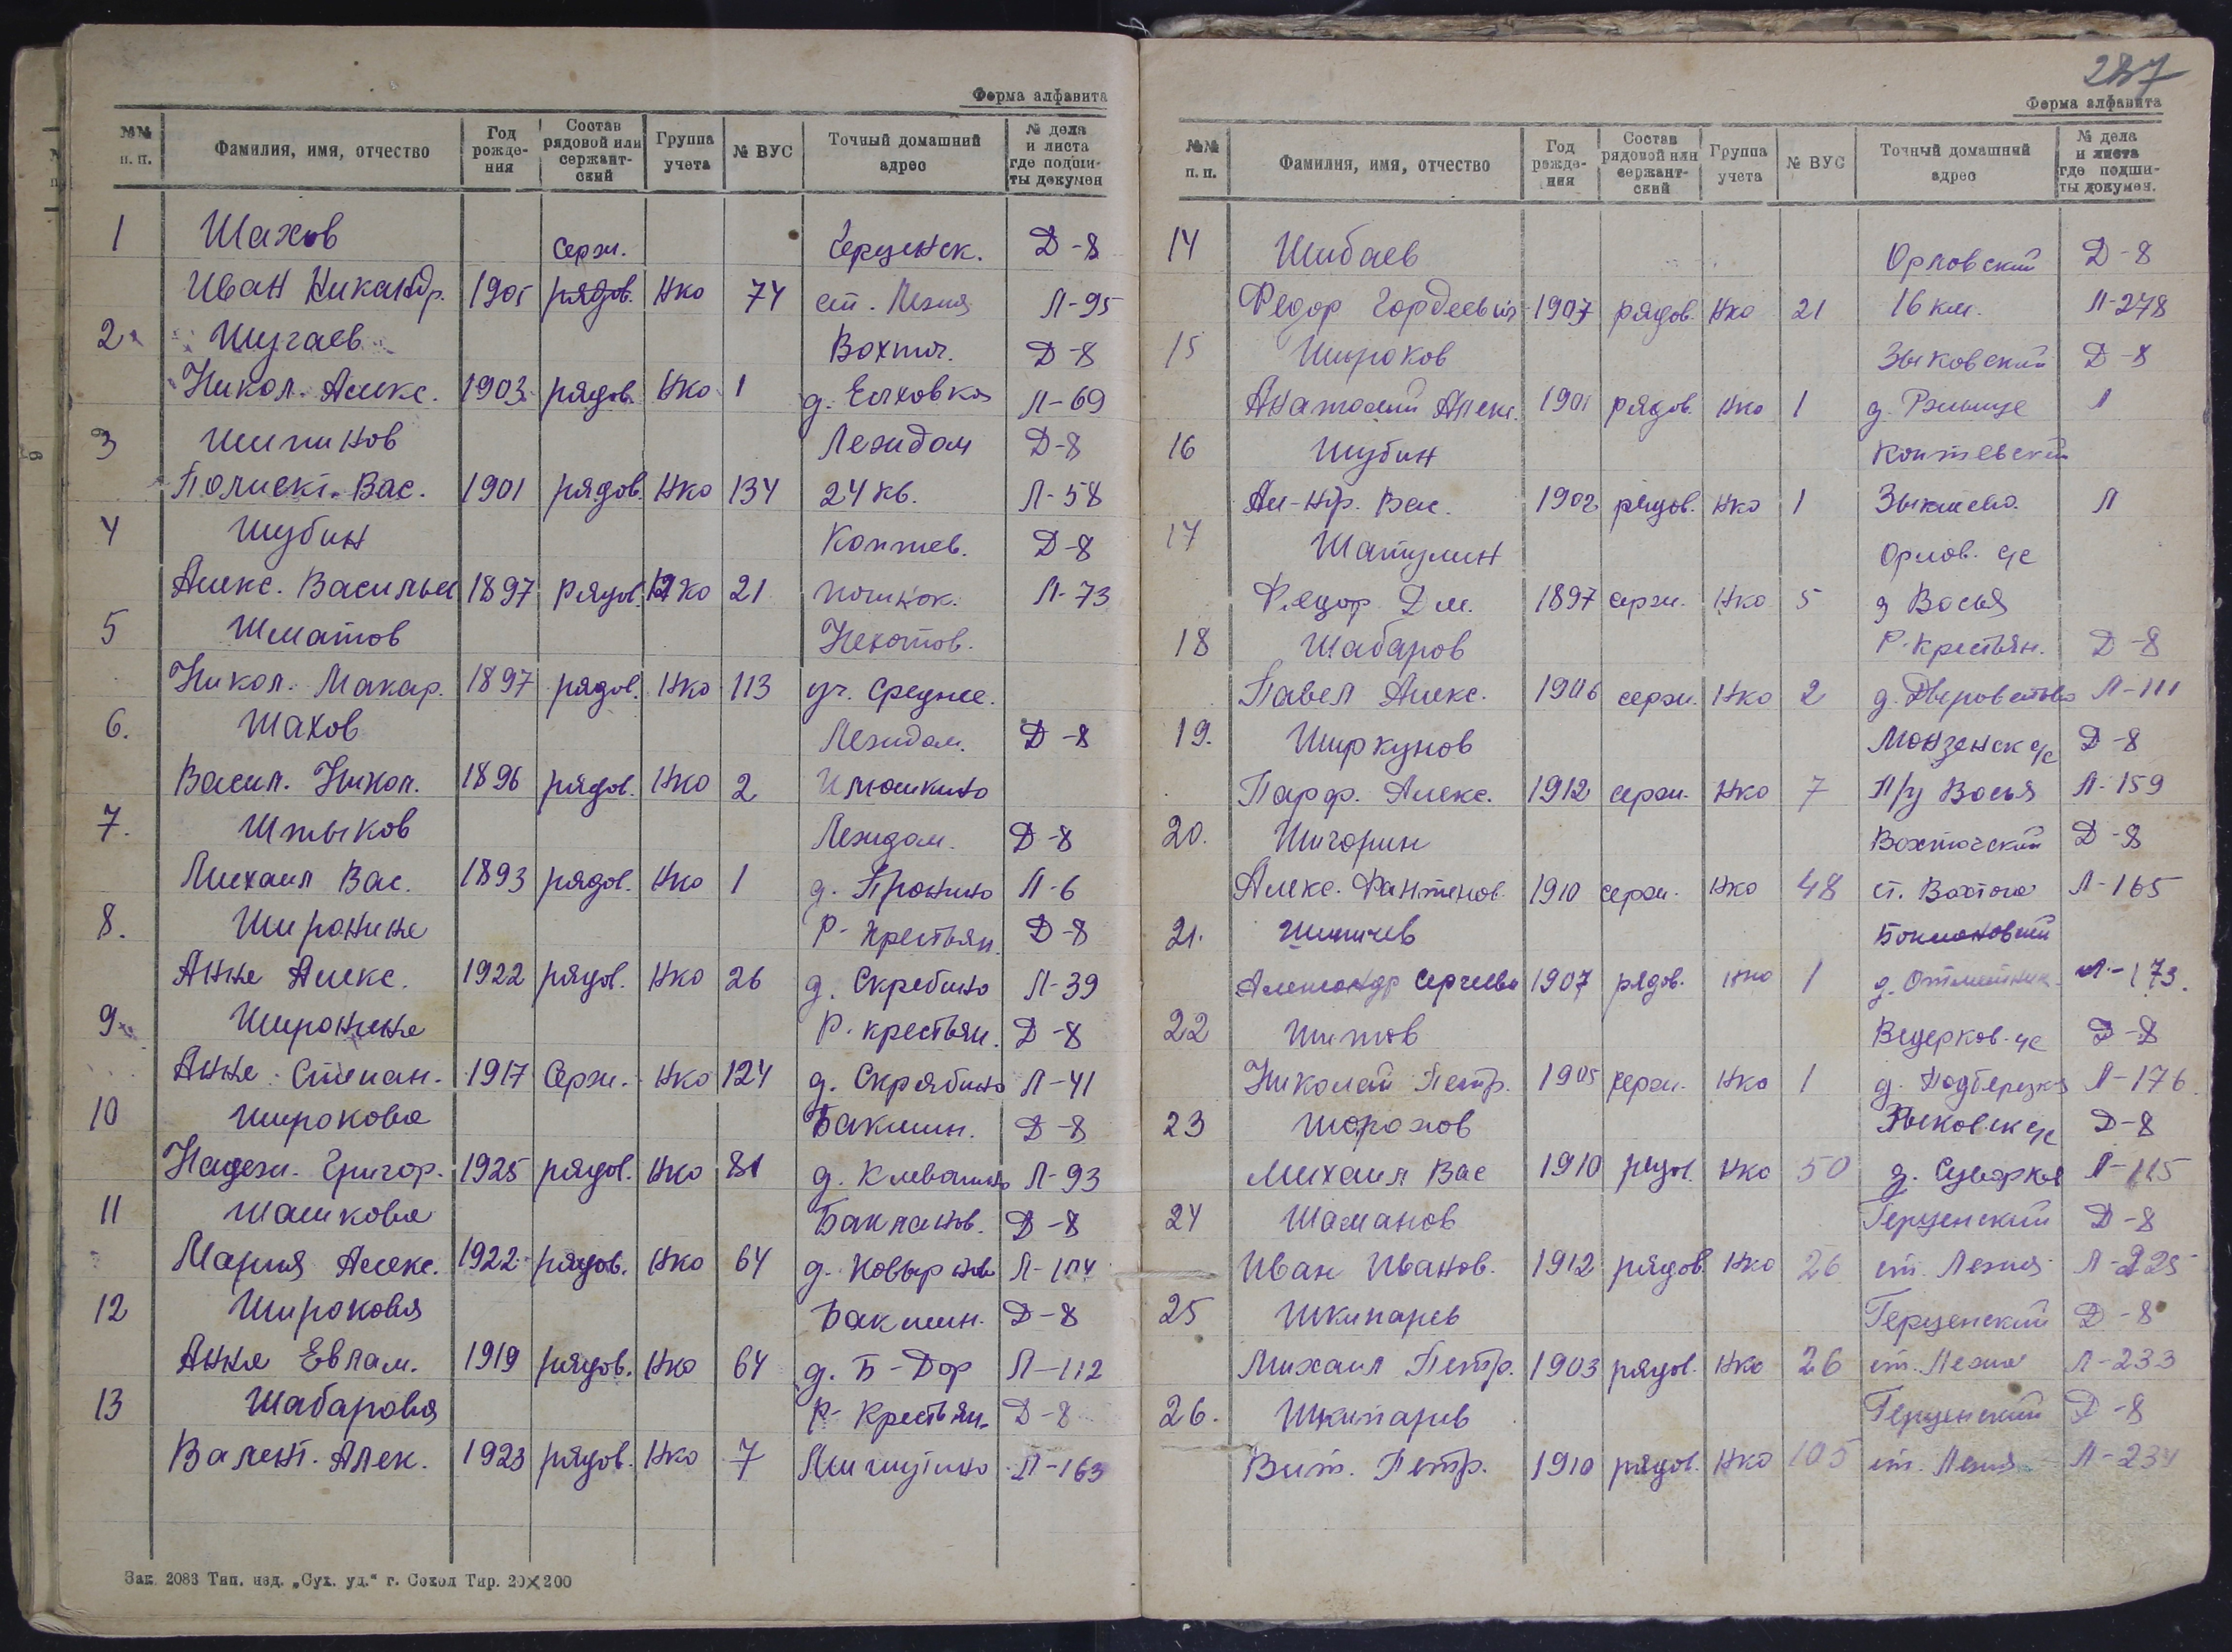 Форма алфавита
№№ п. п. Фамилия, имя, отчество Год рожде-ния Состав рядовой или сержант-ский Группа учета № ВУС Точный домашний адрес № дела и листа где подши-ты докумен
1 Шахов Серж. Герценск. Д-8
Иван Никандр. 1905 рядов. Нко 74 ст. Лежа Л-95
2 Шугаев Вохтог. Д-8
Никол. Алекс. 1903 рядов. Нко 1 д. Елховка Л-69
3 Шипинов Лежидом Д-8
Полиект. Вас. 1901 рядов. Нко 134 24 кв. Л-58
4 Шубин Коптев. Д-8
Алекс. Васильев 1897 Рядов. Нко 21 Л-73
5 Шматов
Никол. Макар. 1897 рядов. Нко 113 уч. Среднее.
6. Шахов Лежидом. Д-8
Васил. Никол. 1896 рядов. Нко 2 Илюшкино
7. Шпыков Лежидом. Д-8
Михаил Вас. 1893 рядов. Нко 1 д. Пронино Л-6
8. Широнина Р-Крестьян. Д-8
Анна Алекс. 1922 рядов. Нко 26 д. Скребино Л-39
9 Широнина Р. крестьян. Д-8
Анна Степан. 1917 Серж. Нко 124 д. Скрябино Л-41
10 Широкова Бакшин. Д-8
Надеж. Григор. 1925 рядов. Нко 81 д. Клевашино Л-93
11 Шашкова Баклaнов. Д-8
Мария Алекс. 1922 рядов. Нко 64 Л-104
12 Широкова Бакшин. Д-8
Анна Евлам. 1919 рядов. Нко 64 д. Б-Дор Л-112
13 Шабарова Р-Крестьян. Д-8
Валент. Алек. 1923 рядов. Нко 7 Мичутино Л-163
Зак. 2083 Тип. изд. „Сух. уд.“ г. Сокол Тир. 20×200
287
Форма алфавита
№№ п. п. Фамилия, имя, отчество Год рожде-ния Состав рядовой или сержант-ский Группа учета № ВУС Точный домашний адрес № дела и листа где подши-ты докумен.
14 Шибаев Орловский Д-8
Федор Гордеевич 1907 рядов. Нко 21 16 км. Л-278
15 Широков Зыковский Д-8
Анатолий Алекс. 1901 рядов. Нко 1 Л
16 Шубин Коптевский
Ал-нр. Вас. 1902 рядов. Нко 1 Л
17 Шатулин Орлов. с/с
Федор Дм. 1897 серж. Нко 5 д Восья
18 Шабаров Р-Крестьян. Д-8
Павел Алекс. 1906 серж. Нко 2 Л-111
19. Ширкунов Монзенск с/с Д-8
Парф. Алекс. 1912 серж. Нко 7 П/у Восья Л-159
20. Шигорин Вохтогский Д-8
Алекс. 1910 серж. Нко 48 ст. Вохтога Л-165
21.
Александр Сергеевич 1907 рядов. Нко 1 Л-173.
22 Шитов Ведерков. с/с Д-8
Николай Петр. 1905 серж. Нко 1 д. Подберезка Л-176
23 Шорохов Зыковск с/с Д-8
Михаил Вас 1910 рядов. Нко 50
24 Шаманов Герценский Д-8
Иван Иванов. 1912 рядов. Нко 26 ст. Лежа Л-225
25 Шкипарев Герценский Д-8
Михаил Петр. 1903 рядов. Нко 26 ст. Лежа Л-233
26. Шкипарев Герценский Д-8
Вит. Петр. 1910 рядов. Нко 105 ст. Лежа Л-234